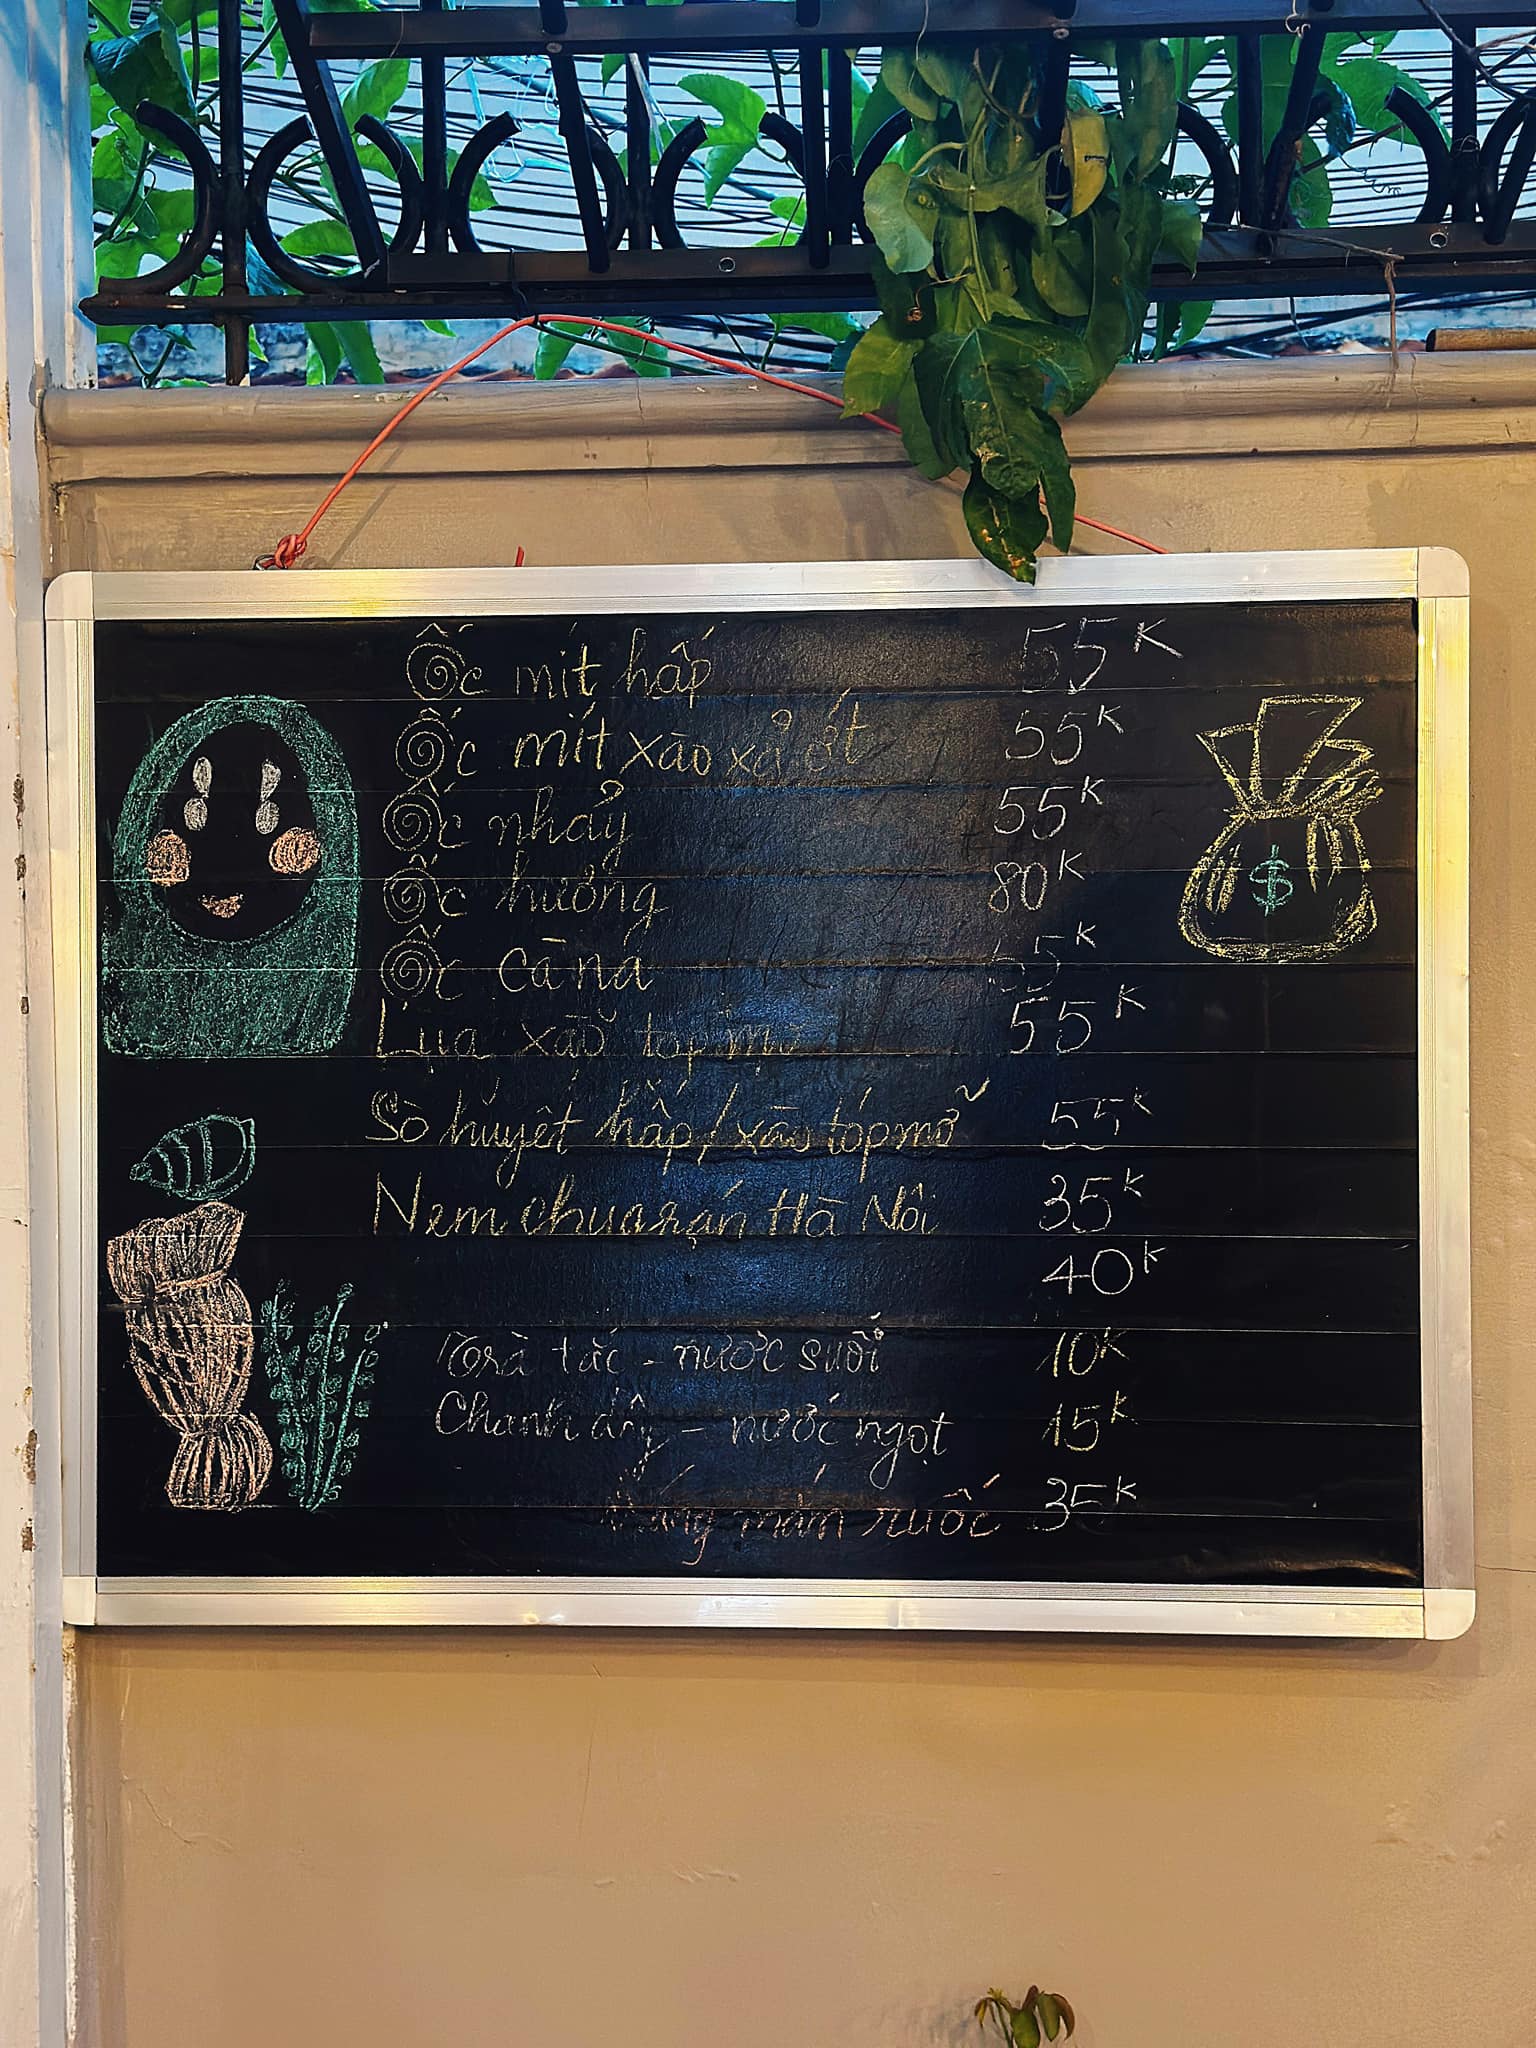 Ốc mít hấp 55K
Ốc mít xào xả ớt 55K
Ốc nhảy 55K
Ốc hương 80K
Ốc cà na 55K
Lụa xào tóp mỡ 55K
Sò huyết hấp/xào tóp mỡ 55K
Nem chua rán Hà Nội 35K
40K
Trà tắc - nước suối 10K
Chanh dây - nước ngọt 15K
mắm ruốc 35K
$